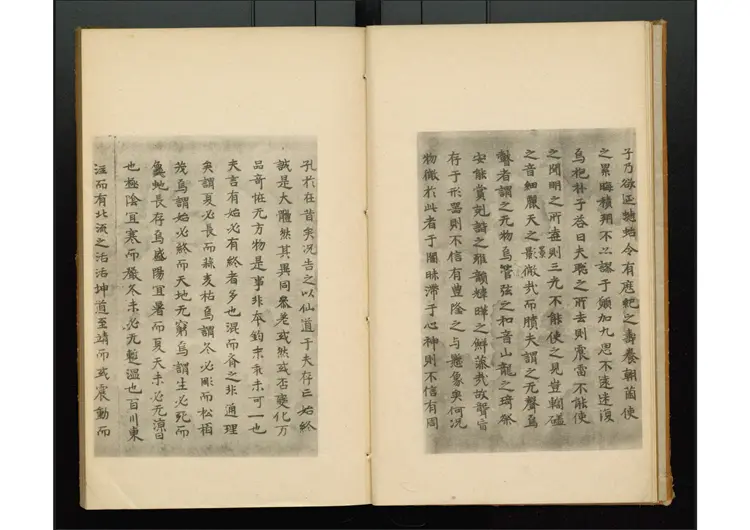 子乃欲延蟪蛄令有歷紀之壽養朝菌使
之累晦積朔不亦謬乎願加九思不遠迷復
焉抱朴子荅曰夫聰之所去則震雷不能使
之聞明之所盡則三光不能使之見豈輷磕
之音細麗天之景微哉而聵夫謂之无聲焉
瞽者謂之无物焉管弦之和音山龍之琦粲
安能賞剋諧之雅韻暐曄之鱗藻哉故聾盲
存乎形器則不信有豊隆之与懸象矣何況
物微於此者乎闇昧滯于心神則不信有周
孔於在昔矣况告之以仙道乎夫存亡始終
誠是大體然其異同參差或然或否變化万
品奇恠无方物是事非本鈞末乖未可一也
夫言有始必有終者多也混而齊之非通理
矣謂夏必長而蒜麦枯焉謂冬必彫而松栢
茂焉謂始必終而天地无窮焉謂生必死而
龜虵長存焉盛陽宜暑而夏天未必无涼日
也極陰宜寒而嚴冬未必无蹔溫也百川東
注而有北流之浩浩坤道至靖而或震動而